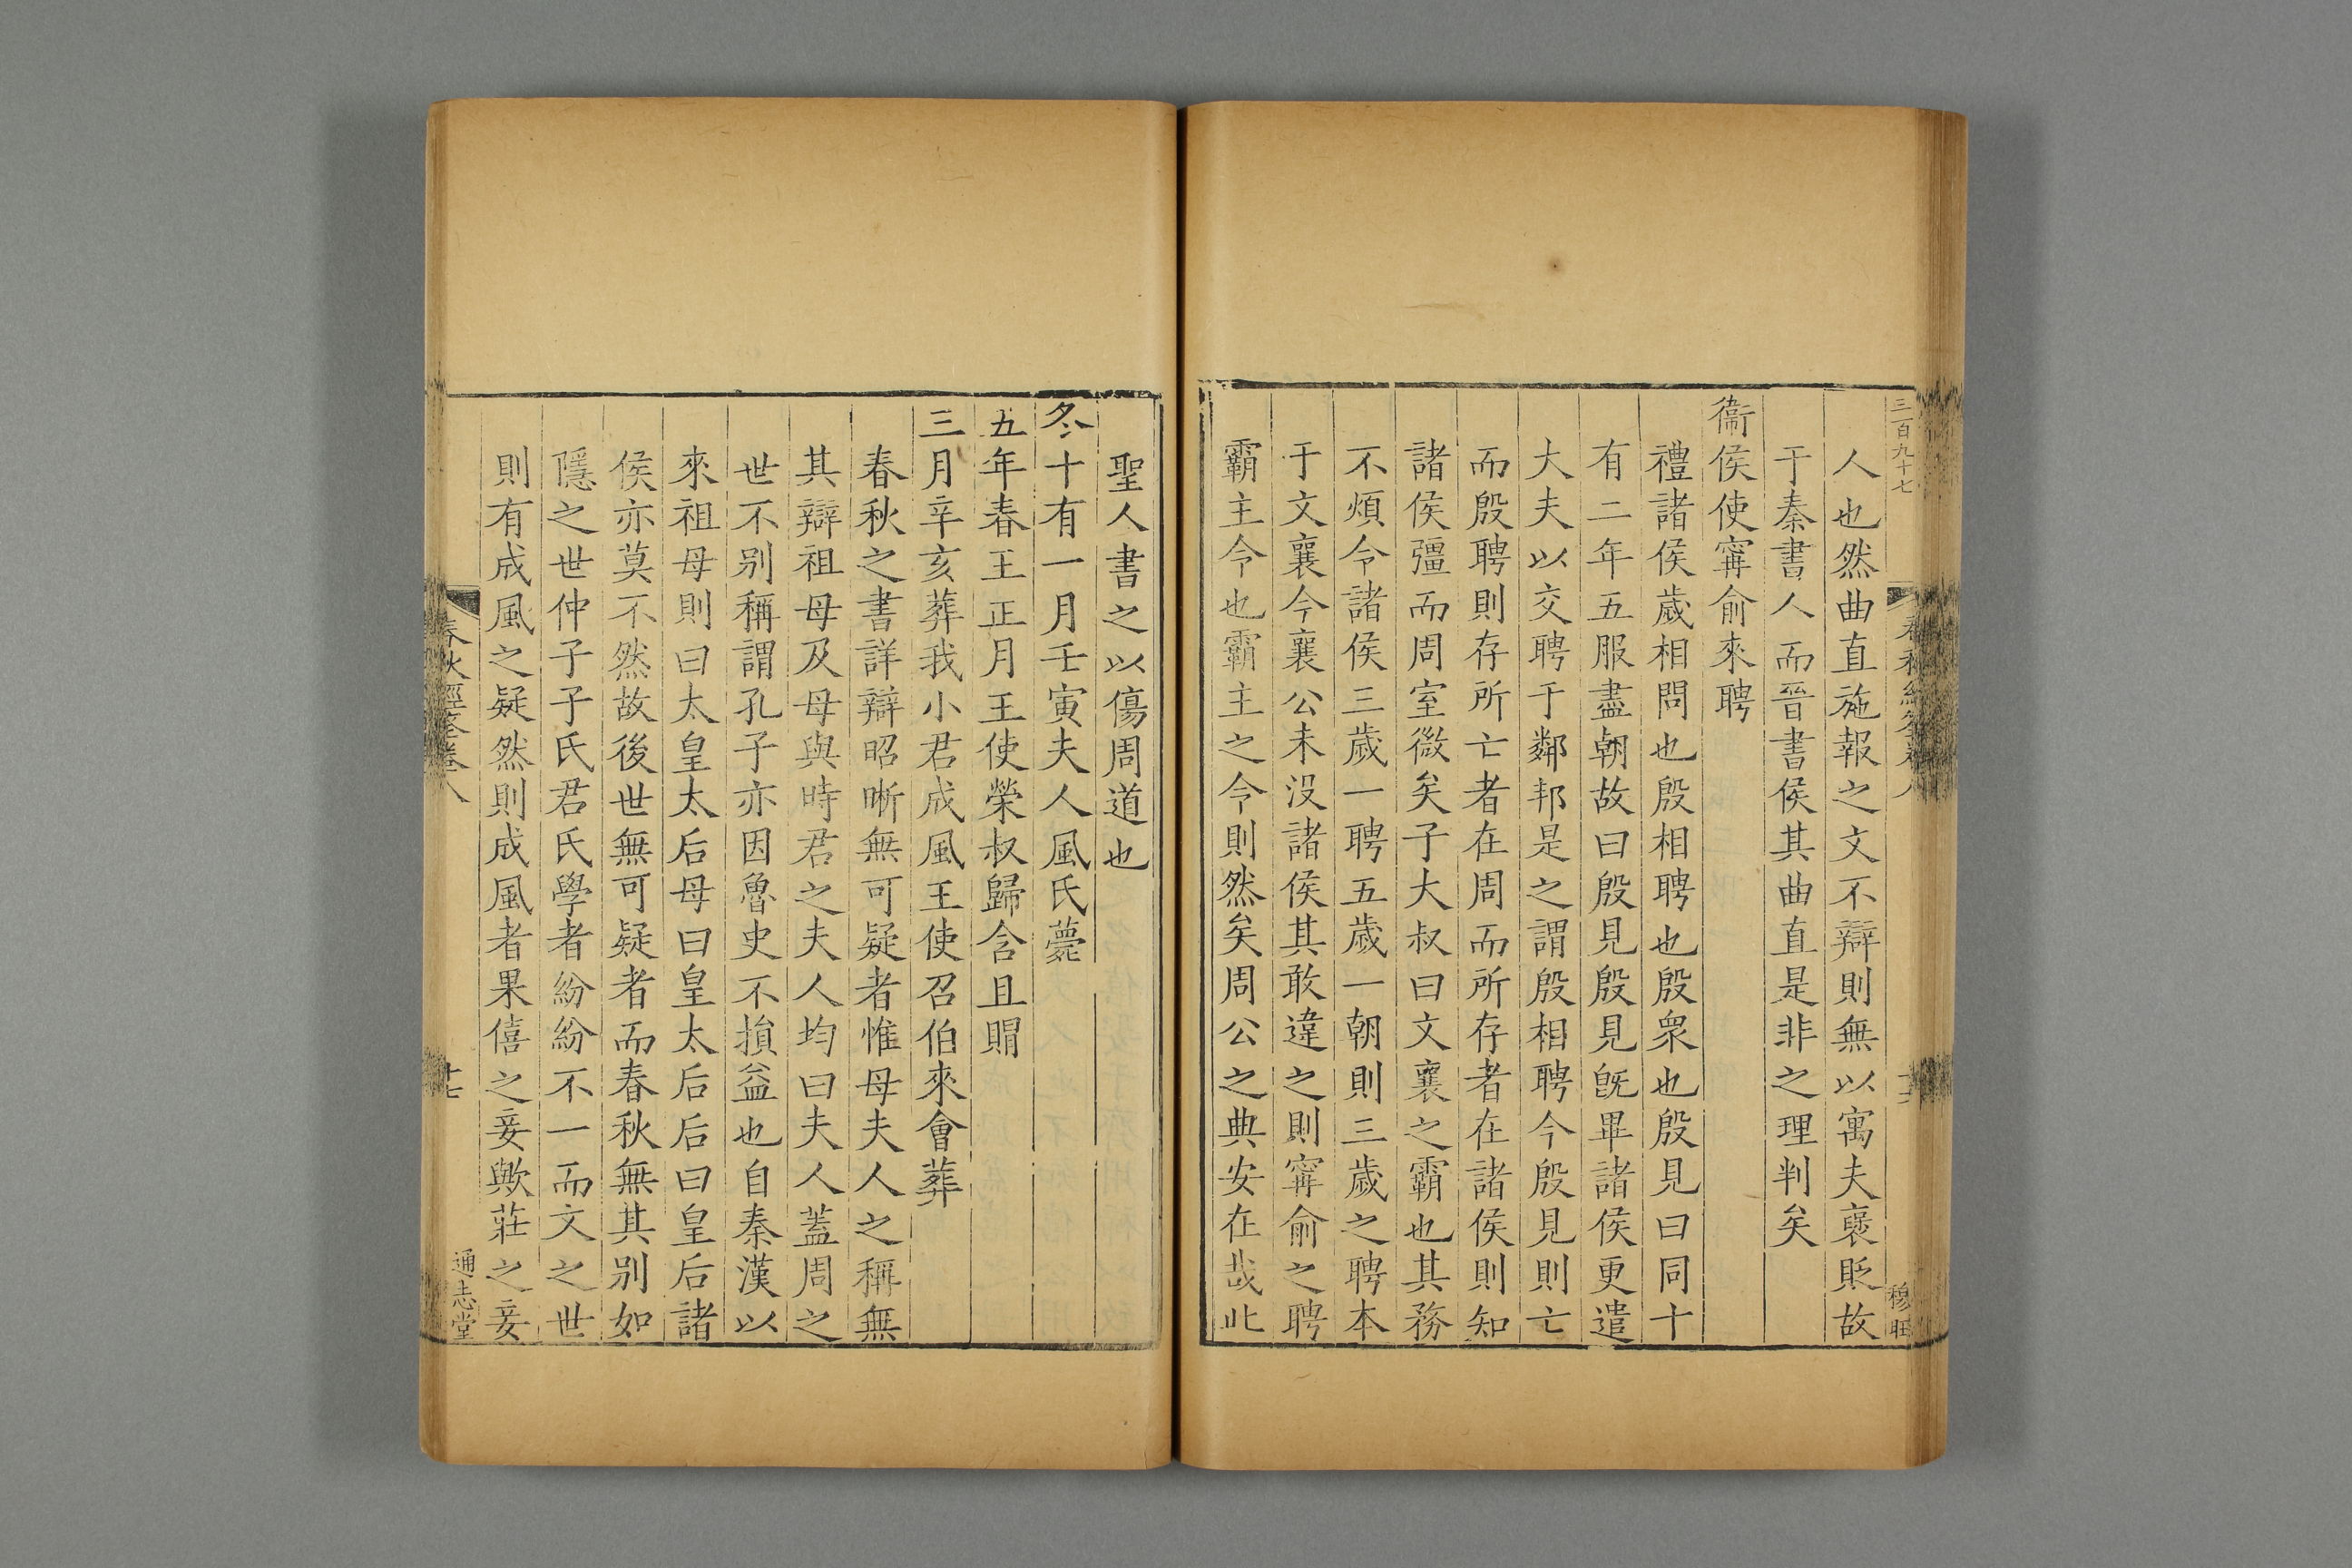 三百九十七
春秋經筌卷八
穆旺
人也然曲直施報之文不辯則無以寓夫褒貶故
于秦書人而晉書侯其曲直是非之理判矣
衞侯使甯俞來聘
禮諸侯歲相問也殷相聘也殷衆也殷見曰同十
有二年五服盡朝故曰殷見殷見旣畢諸侯更遣
大夫以交聘于鄰邦是之謂殷相聘今殷見則亡
而殷聘則存所亡者在周而所存者在諸侯則知
諸侯彊而周室微矣子大叔曰文襄之霸也其務
不煩令諸侯三歲一聘五歲一朝則三歲之聘本
于文襄今襄公未沒諸侯其敢違之則甯俞之聘
霸主令也霸主之令則然矣周公之典安在哉此
聖人書之以傷周道也
冬十有一月壬寅夫人風氏薨
五年春王正月王使榮叔歸含且賵
三月辛亥葬我小君成風王使召伯來會葬
春秋之書詳辯昭晰無可疑者惟母夫人之稱無
其辯祖母及母與時君之夫人均曰夫人蓋周之
世不别稱謂孔子亦因魯史不損益也自秦漢以
來祖母則曰太皇太后母曰皇太后后曰皇后諸
侯亦莫不然故後世無可疑者而春秋無其别如
隱之世仲子子氏君氏學者紛紛不一而文之世
則有成風之疑然則成風者果僖之妾歟莊之妾
春秋經筌卷八
十七
通志堂